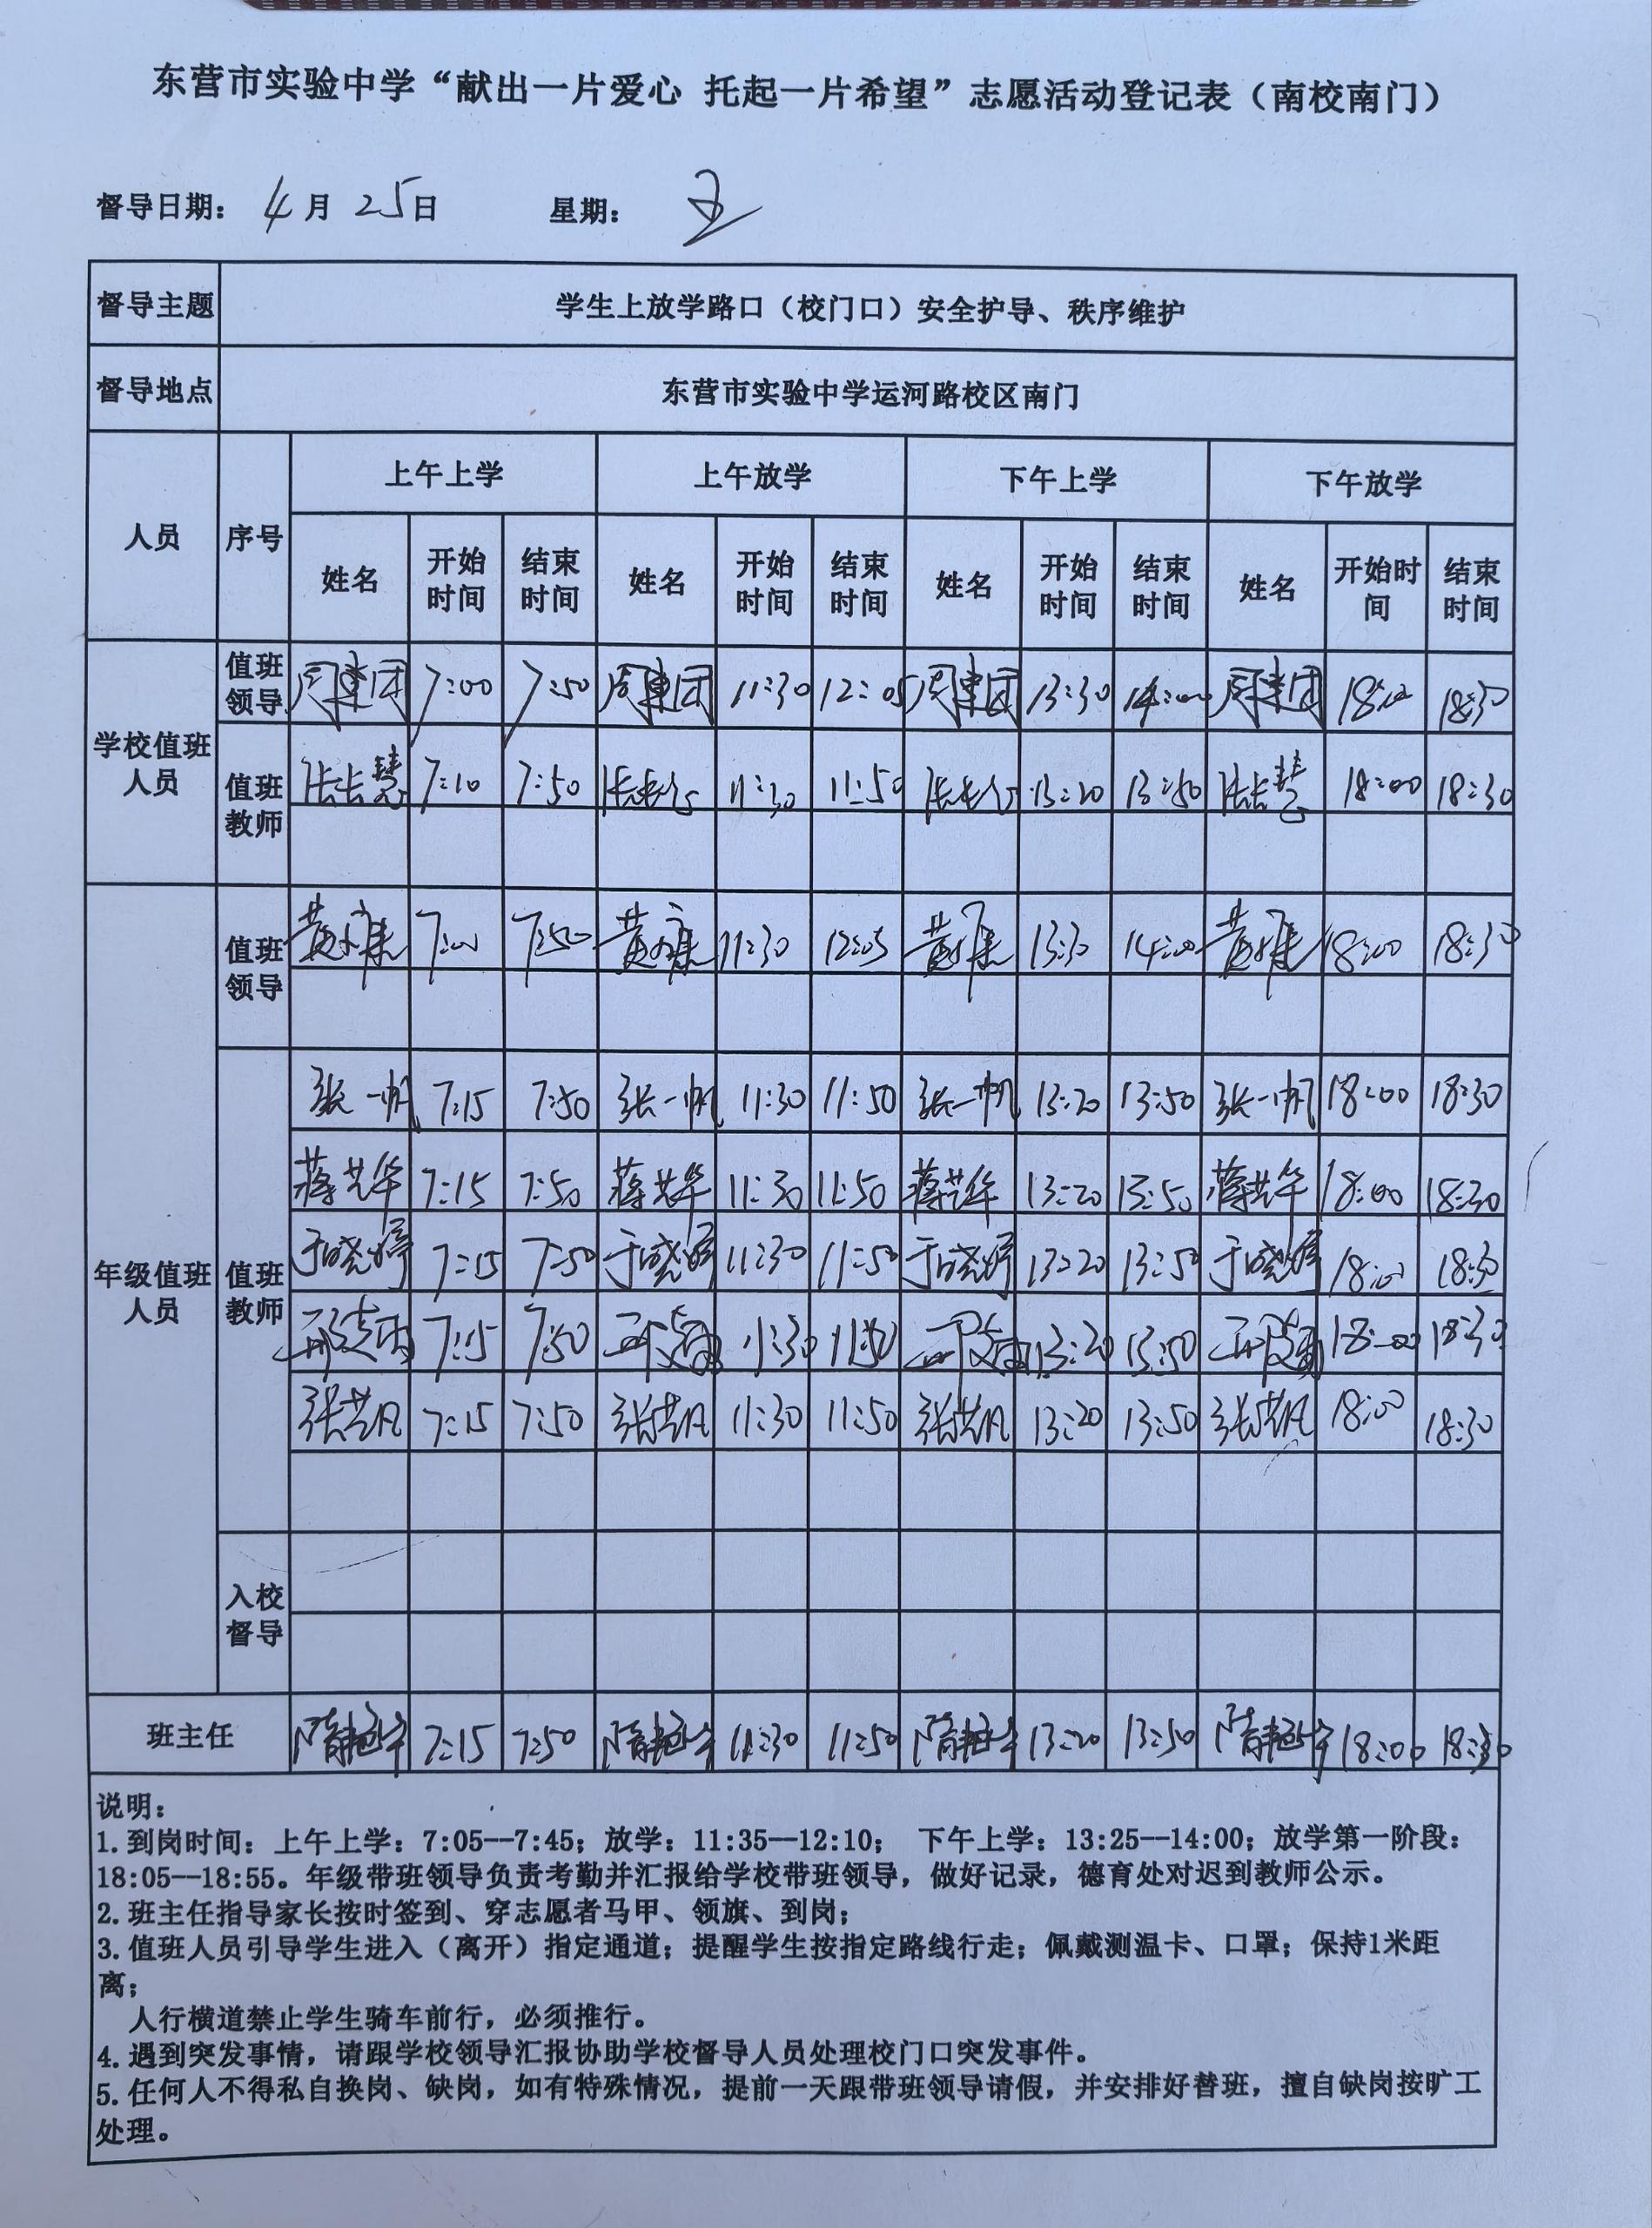 东营市实验中学“献出一片爱心 托起一片希望”志愿活动登记表（南校南门）
督导日期： 4月 25日 星期： 五
督导主题 学生上放学路口（校门口）安全护导、秩序维护
督导地点 东营市实验中学运河路校区南门
人员 序号 上午上学 上午放学 下午上学 下午放学
姓名 开始时间 结束时间 姓名 开始时间 结束时间 姓名 开始时间 结束时间 姓名 开始时间 结束时间
学校值班人员
值班领导 周建团 7:00 7:50 周建团 11:30 12:05 周建团 13:30 14:00 周建团 18:00 18:30
值班教师 张长慧 7:10 7:50 11:30 11:50 13:20 13:50 张长慧 18:00 18:30
年级值班人员
值班领导 7:00 7:50 11:30 12:05 13:30 14:00 18:00 18:30
值班教师 张一帆 7:15 7:50 张一帆 11:30 11:50 张一帆 13:20 13:50 张一帆 18:00 18:30
蒋芸华 7:15 7:50 蒋芸华 11:30 11:50 蒋芸华 13:20 13:50 蒋芸华 18:00 18:30
于晓婷 7:15 7:50 于晓婷 11:30 11:50 于晓婷 13:20 13:50 于晓婷 18:00 18:30
7:15 7:50 11:30 11:50 13:20 13:50 18:00 18:30
张芸凡 7:15 7:50 张芸凡 11:30 11:50 张芸凡 13:20 13:50 张芸凡 18:00 18:30
入校督导
班主任 7:15 7:50 11:30 11:50 13:20 13:50 18:00 18:30
说明：
1.到岗时间：上午上学：7:05--7:45；放学：11:35--12:10； 下午上学：13:25--14:00；放学第一阶段：
18:05--18:55。年级带班领导负责考勤并汇报给学校带班领导，做好记录，德育处对迟到教师公示。
2.班主任指导家长按时签到、穿志愿者马甲、领旗、到岗；
3.值班人员引导学生进入（离开）指定通道；提醒学生按指定路线行走；佩戴测温卡、口罩；保持1米距
离；
人行横道禁止学生骑车前行，必须推行。
4.遇到突发事情，请跟学校领导汇报协助学校督导人员处理校门口突发事件。
5.任何人不得私自换岗、缺岗，如有特殊情况，提前一天跟带班领导请假，并安排好替班，擅自缺岗按旷工
处理。